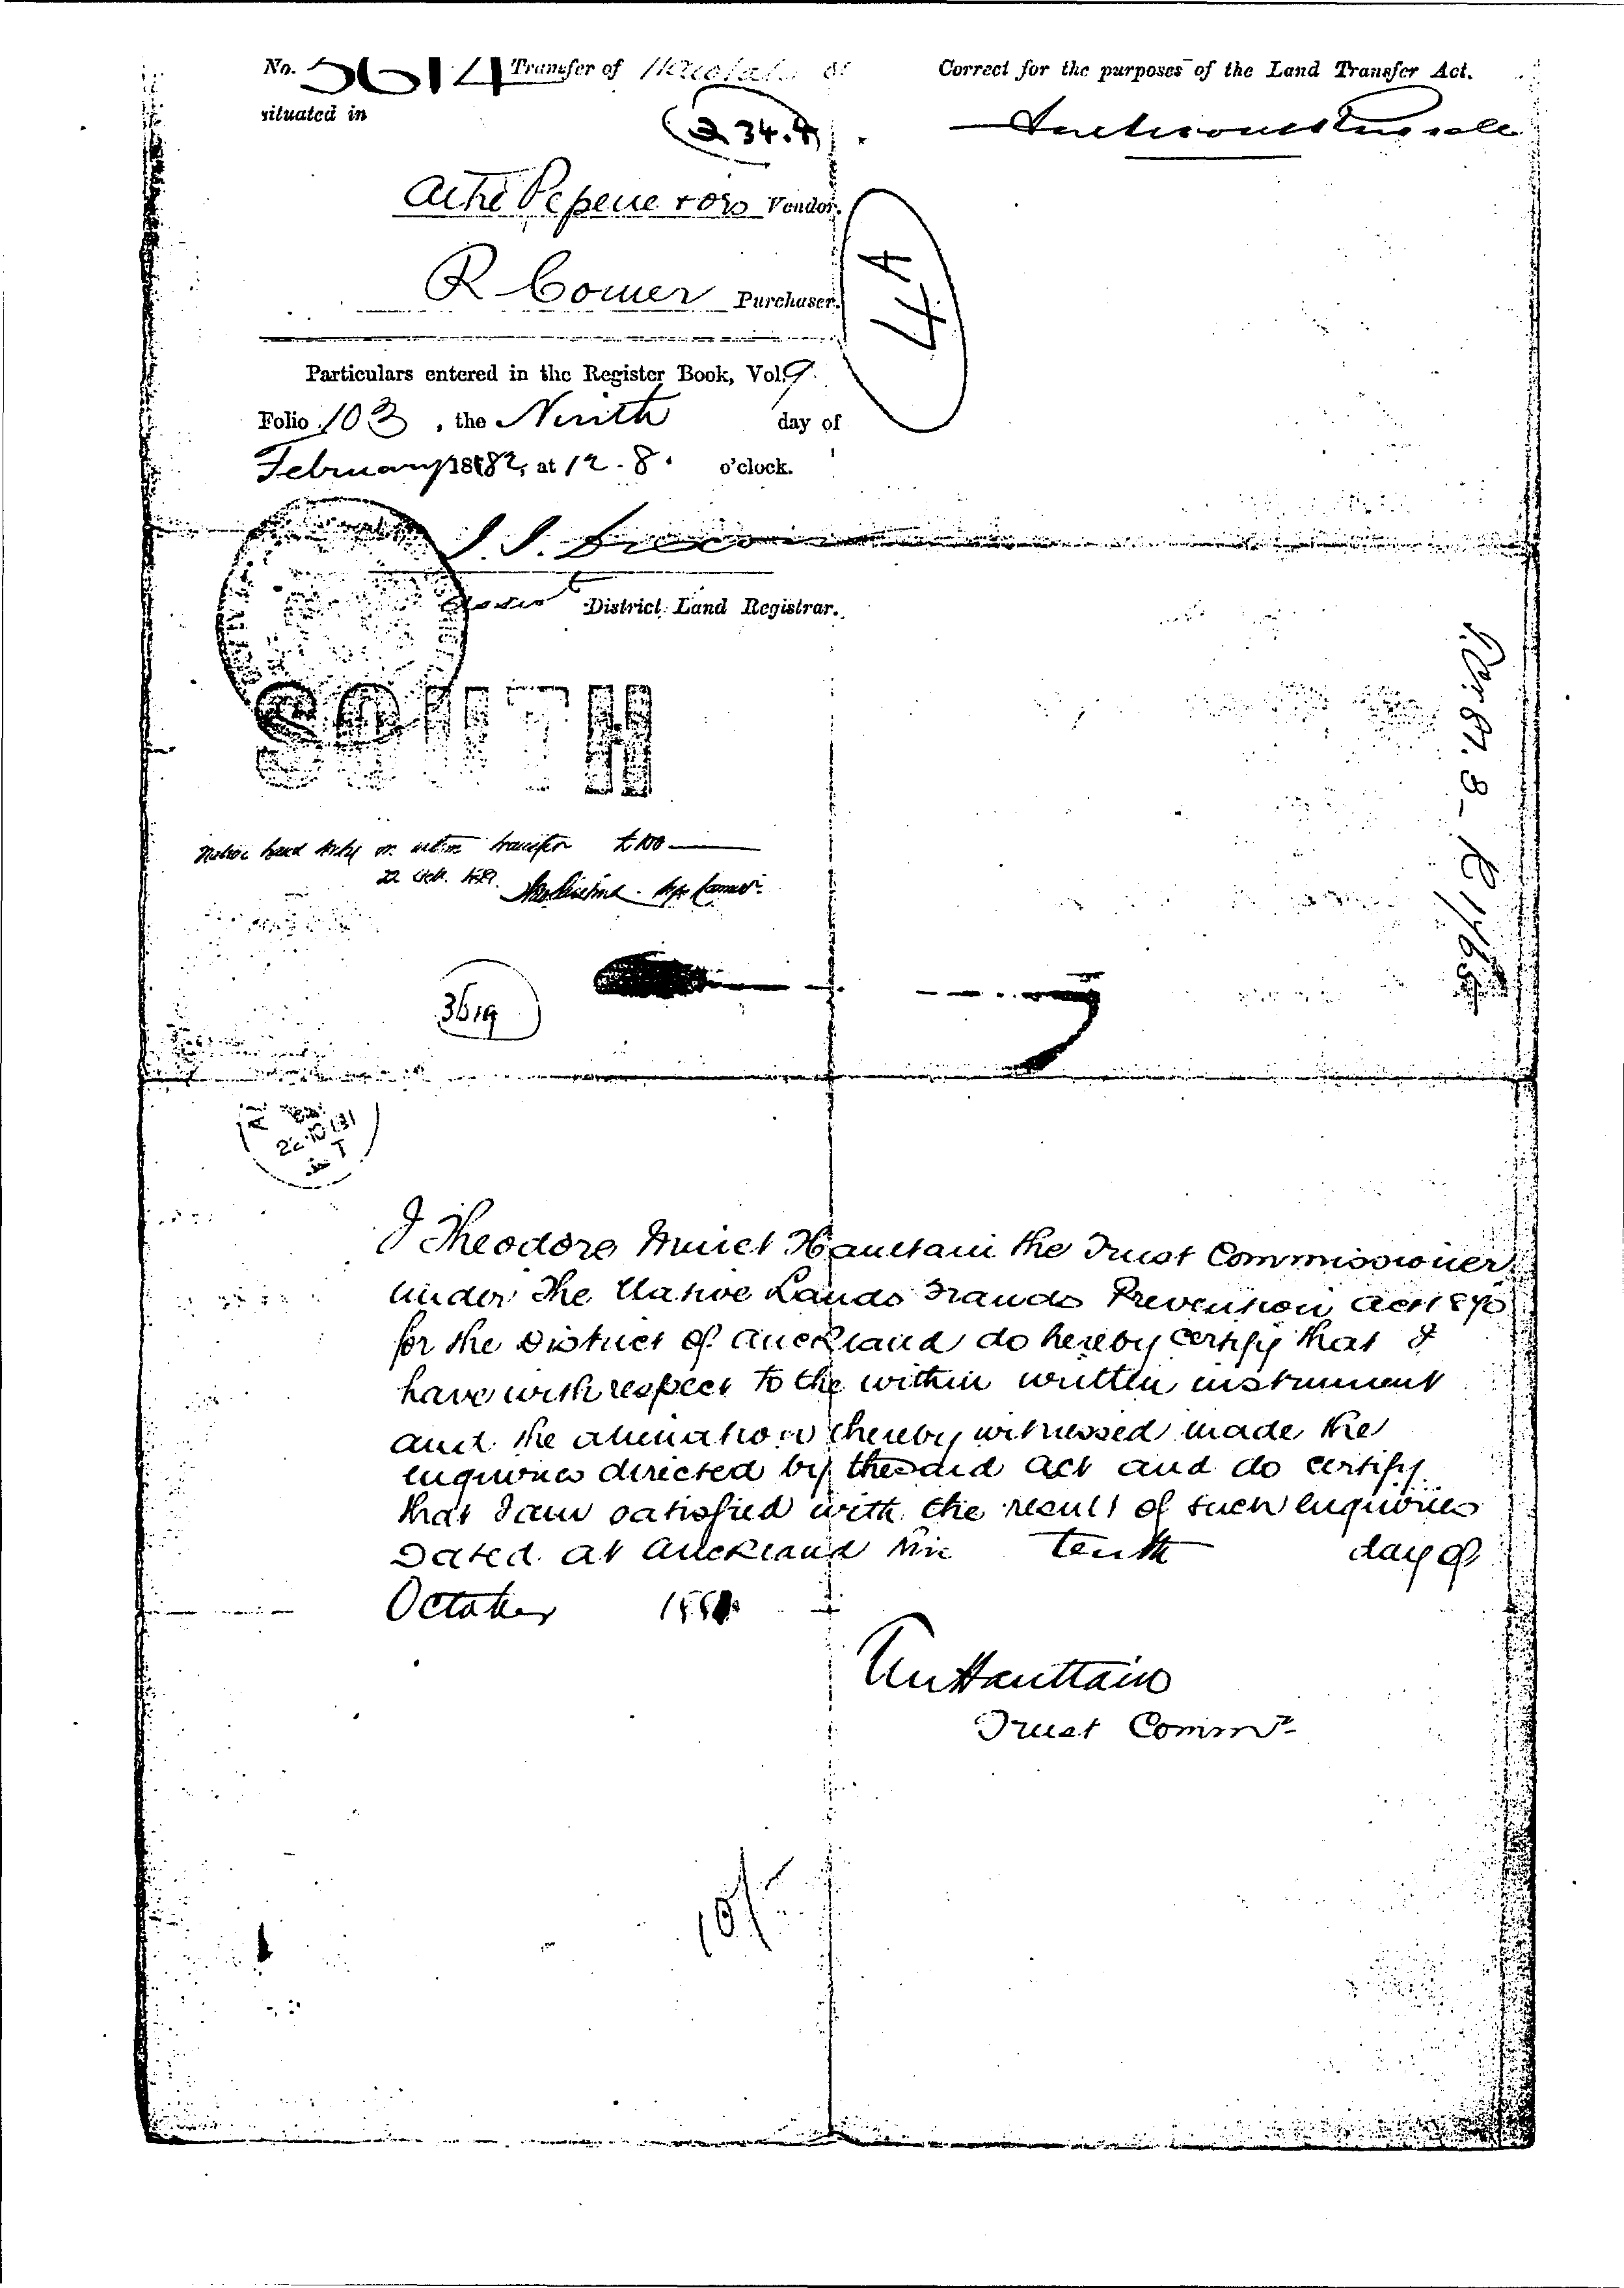 No. 5614 Transfer of
Correct for the purposes of the Land Transfer Act.
situated in
234.A
Vendor.
4A
R Comer Purchaser.
Particulars entered in the Register Book, Vol. 9.
Folio 103, the Ninth day of
February 1882, at 12.8. o'clock.
District Land Registrar.
SOUTH
transfer £100
3619
I Theodore Minet Haultain the Trust Commissioner
under The Native Lands Frauds Prevention Act 1870
for the District of Auckland do hereby certify that I
have with respect to the within written instrument
and the alienation thereby witnessed made the
enquiries directed by the said Act and do certify
that I am satisfied with the result of such enquiries
Dated at Auckland this tenth day of
October 1881
TM Haultain
Trust Commr
10/-